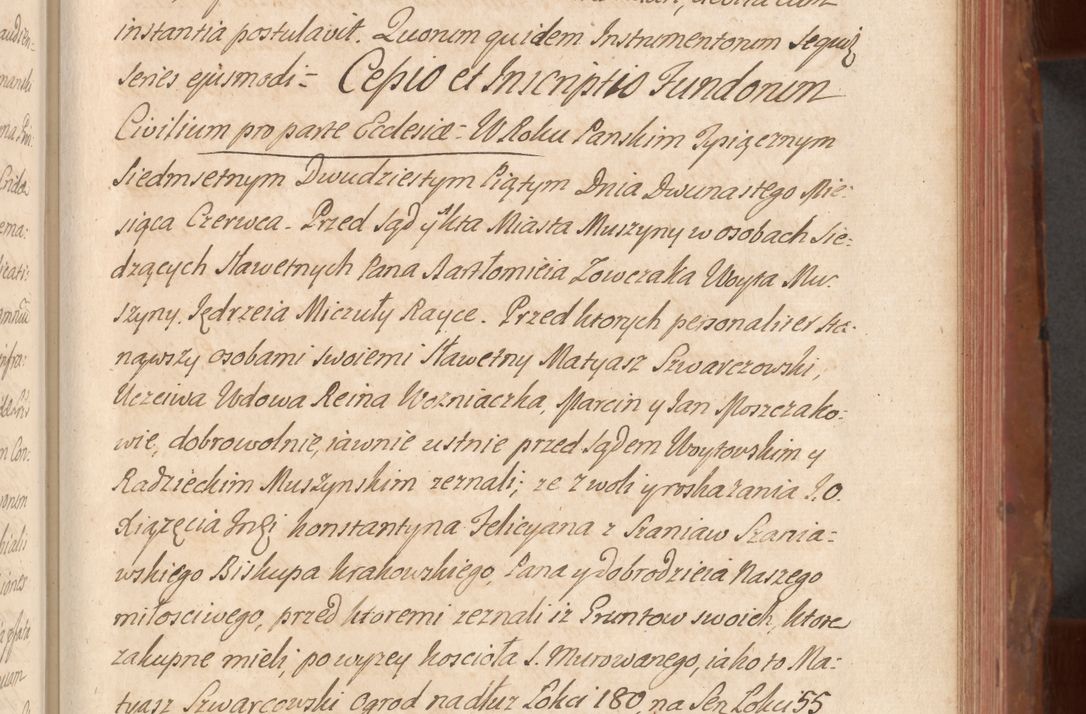 instantia postulavit. Quorum quidem Instrumentorum sequi
series ejusmodi = Cessio et Inscriptio Fundorum
Civilium pro parte Ecclesiæ = W Roku Panskim Tysiącznym
Siedmsetnym Dwudziestym Piątym Dnia Dwunastego Mie:
siąca Czerwca. Przed Sąd y Akta Miasta Muszyny w osobach Sie:
dzących Sławetnych Pana Bartłomieia Łowczaka Woyta Mu:
szyny. Jędrzeia Miczuły Rayce. Przed ktorych personaliter sta:
nąwszy osobami swoiemi Sławetny Matyasz Szwarczowski,
Uczciwa Wdowa Reina Wozniaczka, Marcin y Jan Moszczako:
wie, dobrowolnie, iawnie ustnie przed Sądem Woytowskim y
Radzieckim Muszynskim zeznali; ze z woli y roskazania J. O.
Xiązęcia Jmści konstantyna Felicyana z Szaniaw Szania:
wskiego Biskupa krakowskiego, Pana y dobrodzieia Naszego
miłosciwego, przed ktoremi zeznali iz Gruntow swoich, ktore
zakupne mieli, powyzey koscioła S. Murowanego, iako to Ma:
tyasz Szwarcowski Ogrod nadłuz Łokci 180, na Szen Łokci 55